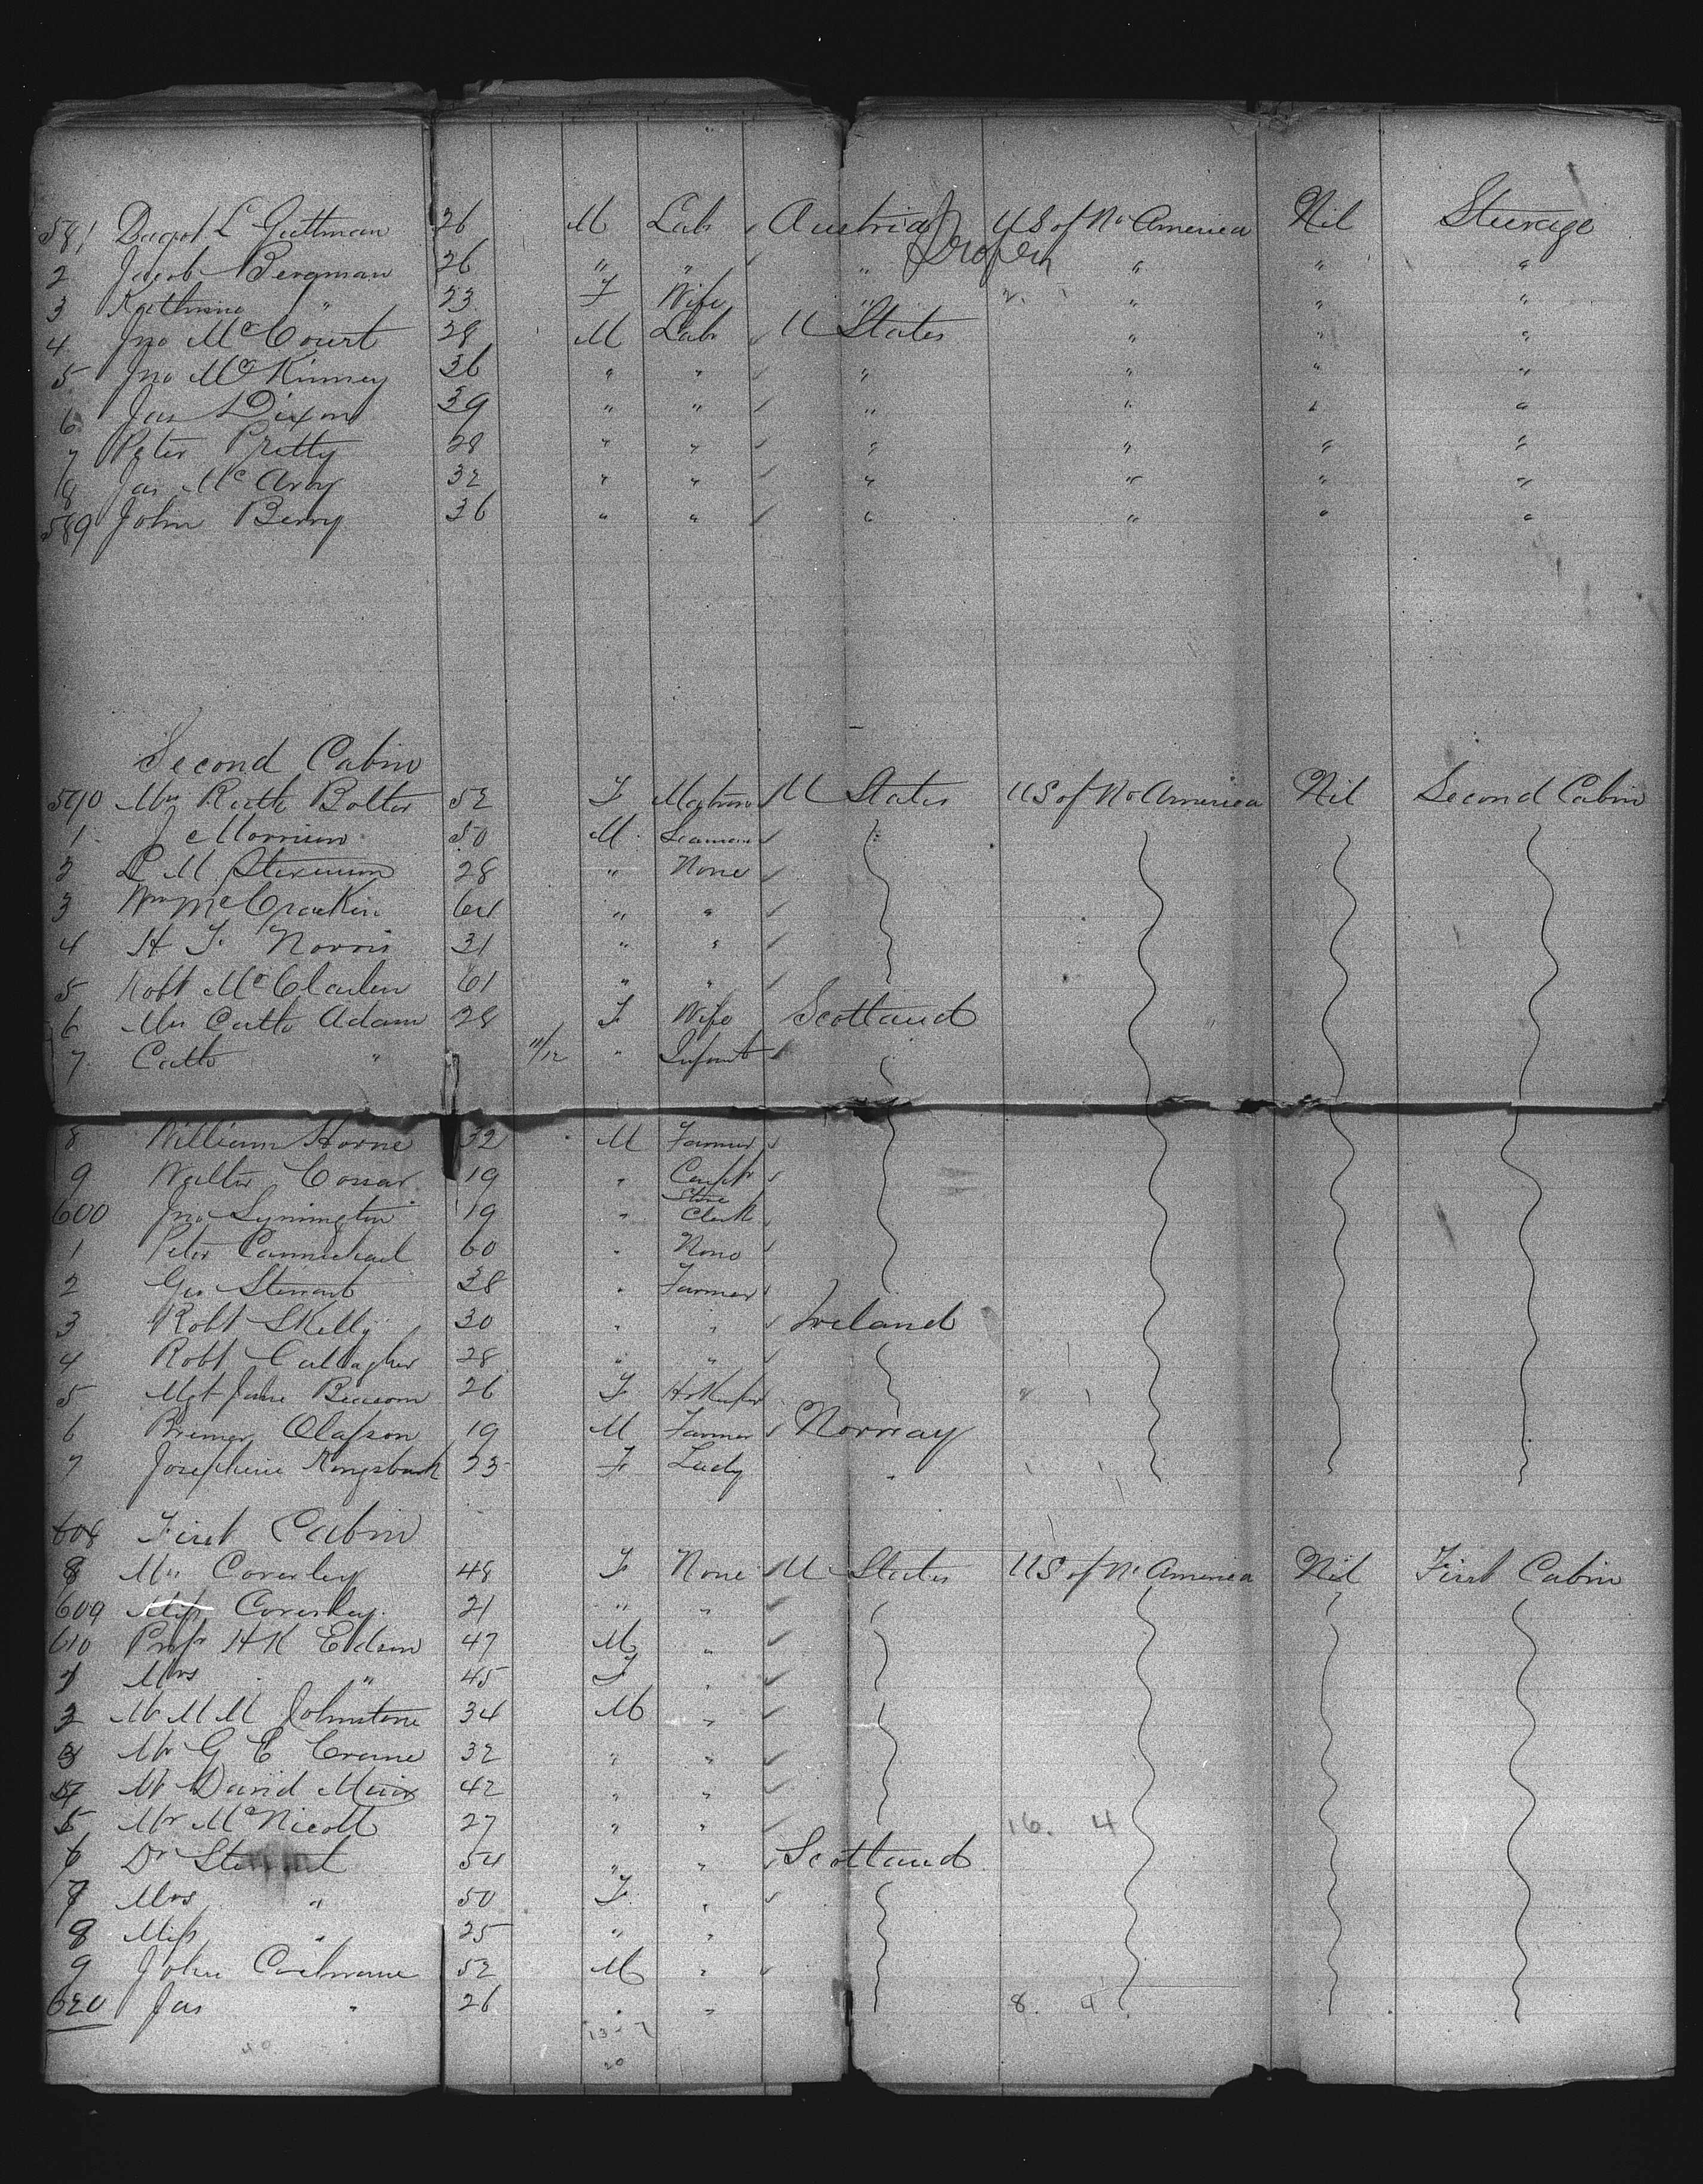 581 Dagot L Guttman 26 M Lab Austria US of No America Nil Steerage
2 Jacob Bergman 26 " " " " " "
3 Kathrine " 23 F Wife " " " "
4 Jno McCourt 28 M Lab U States " " "
5 Jno McKinney 36 " " " " " "
6 Jas Dixon 39 " " " " " "
7 Peter Pretty 28 " " " " " "
8 Jas McAvoy 32 " " " " " "
589 John Berry 36 " " " " " "
Second Cabin
590 Mrs Ruth Bolter 52 F Matron U States US of No America Nil Second Cabin
1 J Morrison 50 M Seaman
2 L M Stevenson 28 " None
3 Wm McCrackin 64 " "
4 H F Norris 31 " "
5 Robt McClarlen 61 " "
6 Mrs Catto Adam 28 F Wife Scotland
7 Catto " 11/12 " Infant
8 William Horne 32 M Farmer
9 Walter Cossar 19 "
600 Jno Symington 19 " Store Clerk
1 Peter Carmichael 60 " None
2 Geo Stewart 38 " Farmer
3 Robt Skelly 30 " " Ireland
4 Robt Callagher 28 " "
5 Mgt Jane Beacom 26 F HsKeeper
6 Bremer Olafson 19 M Farmer Norway
7 Josephine Kongsbach 23 F Lady "
608 First Cabin
8 Mrs Coverley 48 F None U States US of N America Nil First Cabin
609 Miss Coverley 21 " "
610 Profr H K Edson 47 M "
1 Mrs " 45 F "
2 Mr M M Johnstone 34 M "
3 Mr G E Crane 32 " "
4 Mr David Muir 42 " "
5 Mr McNicoll 27 " " 16. 4
6 Dr Stewart 54 " " Scotland
7 Mrs " 50 F "
8 Miss " 25 " "
9 John Cochrane 52 M "
620 Jas " 26 " " 8. 4
13-7
20